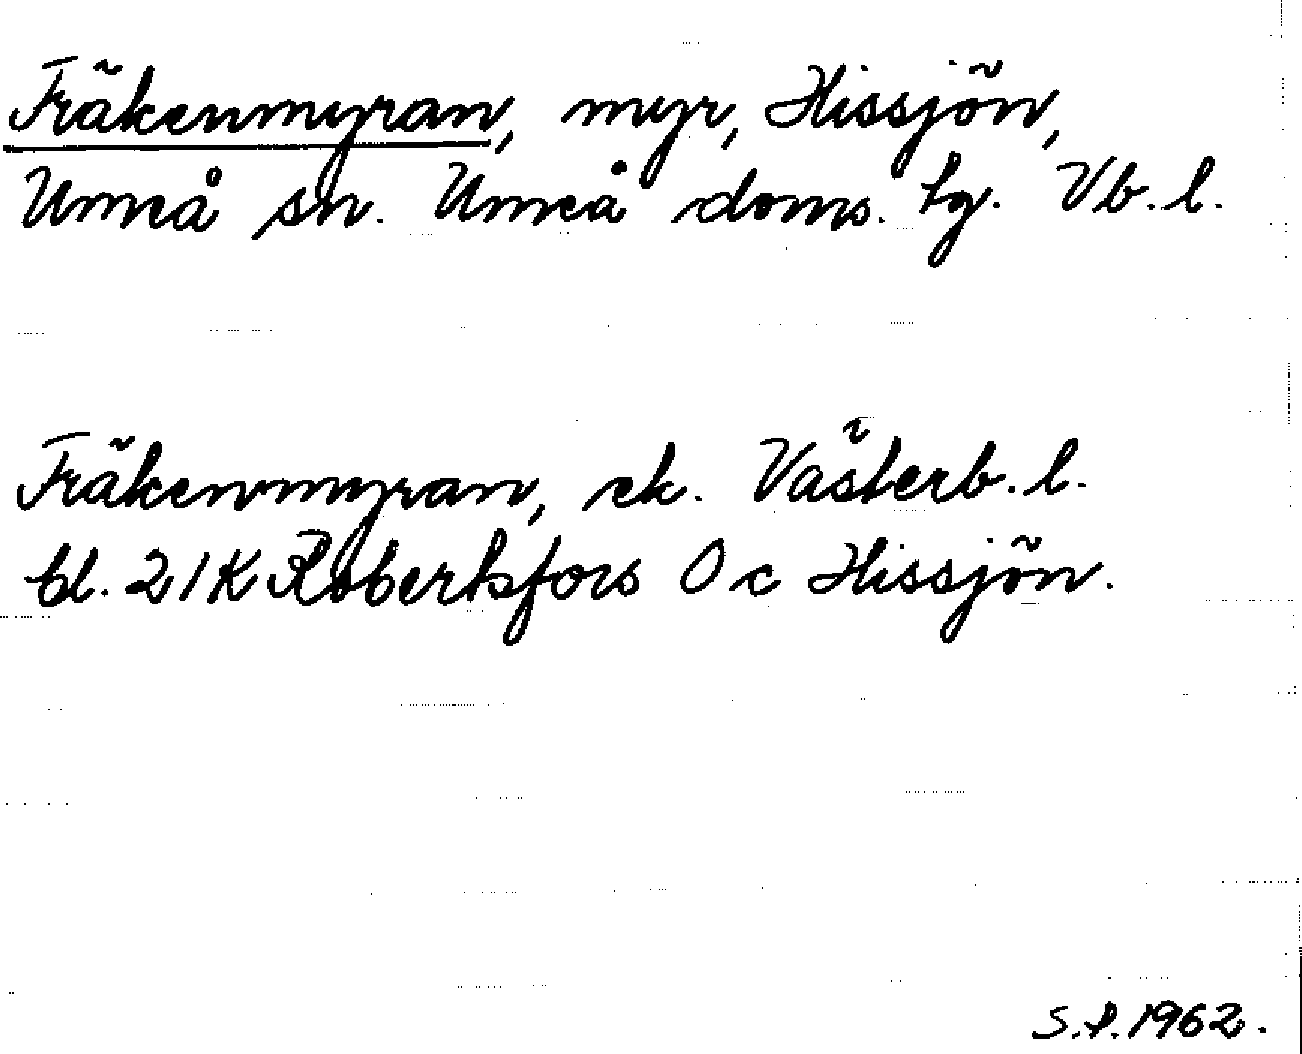 Fräkenmyran, myr, Hissjön,
Umeå sn. Umeå doms. tg. Vb. l.
Fräkenmyran, ek. Västerb. l.
bl. 21K Robertsfors O c Hissjön.
S.P. 1962.